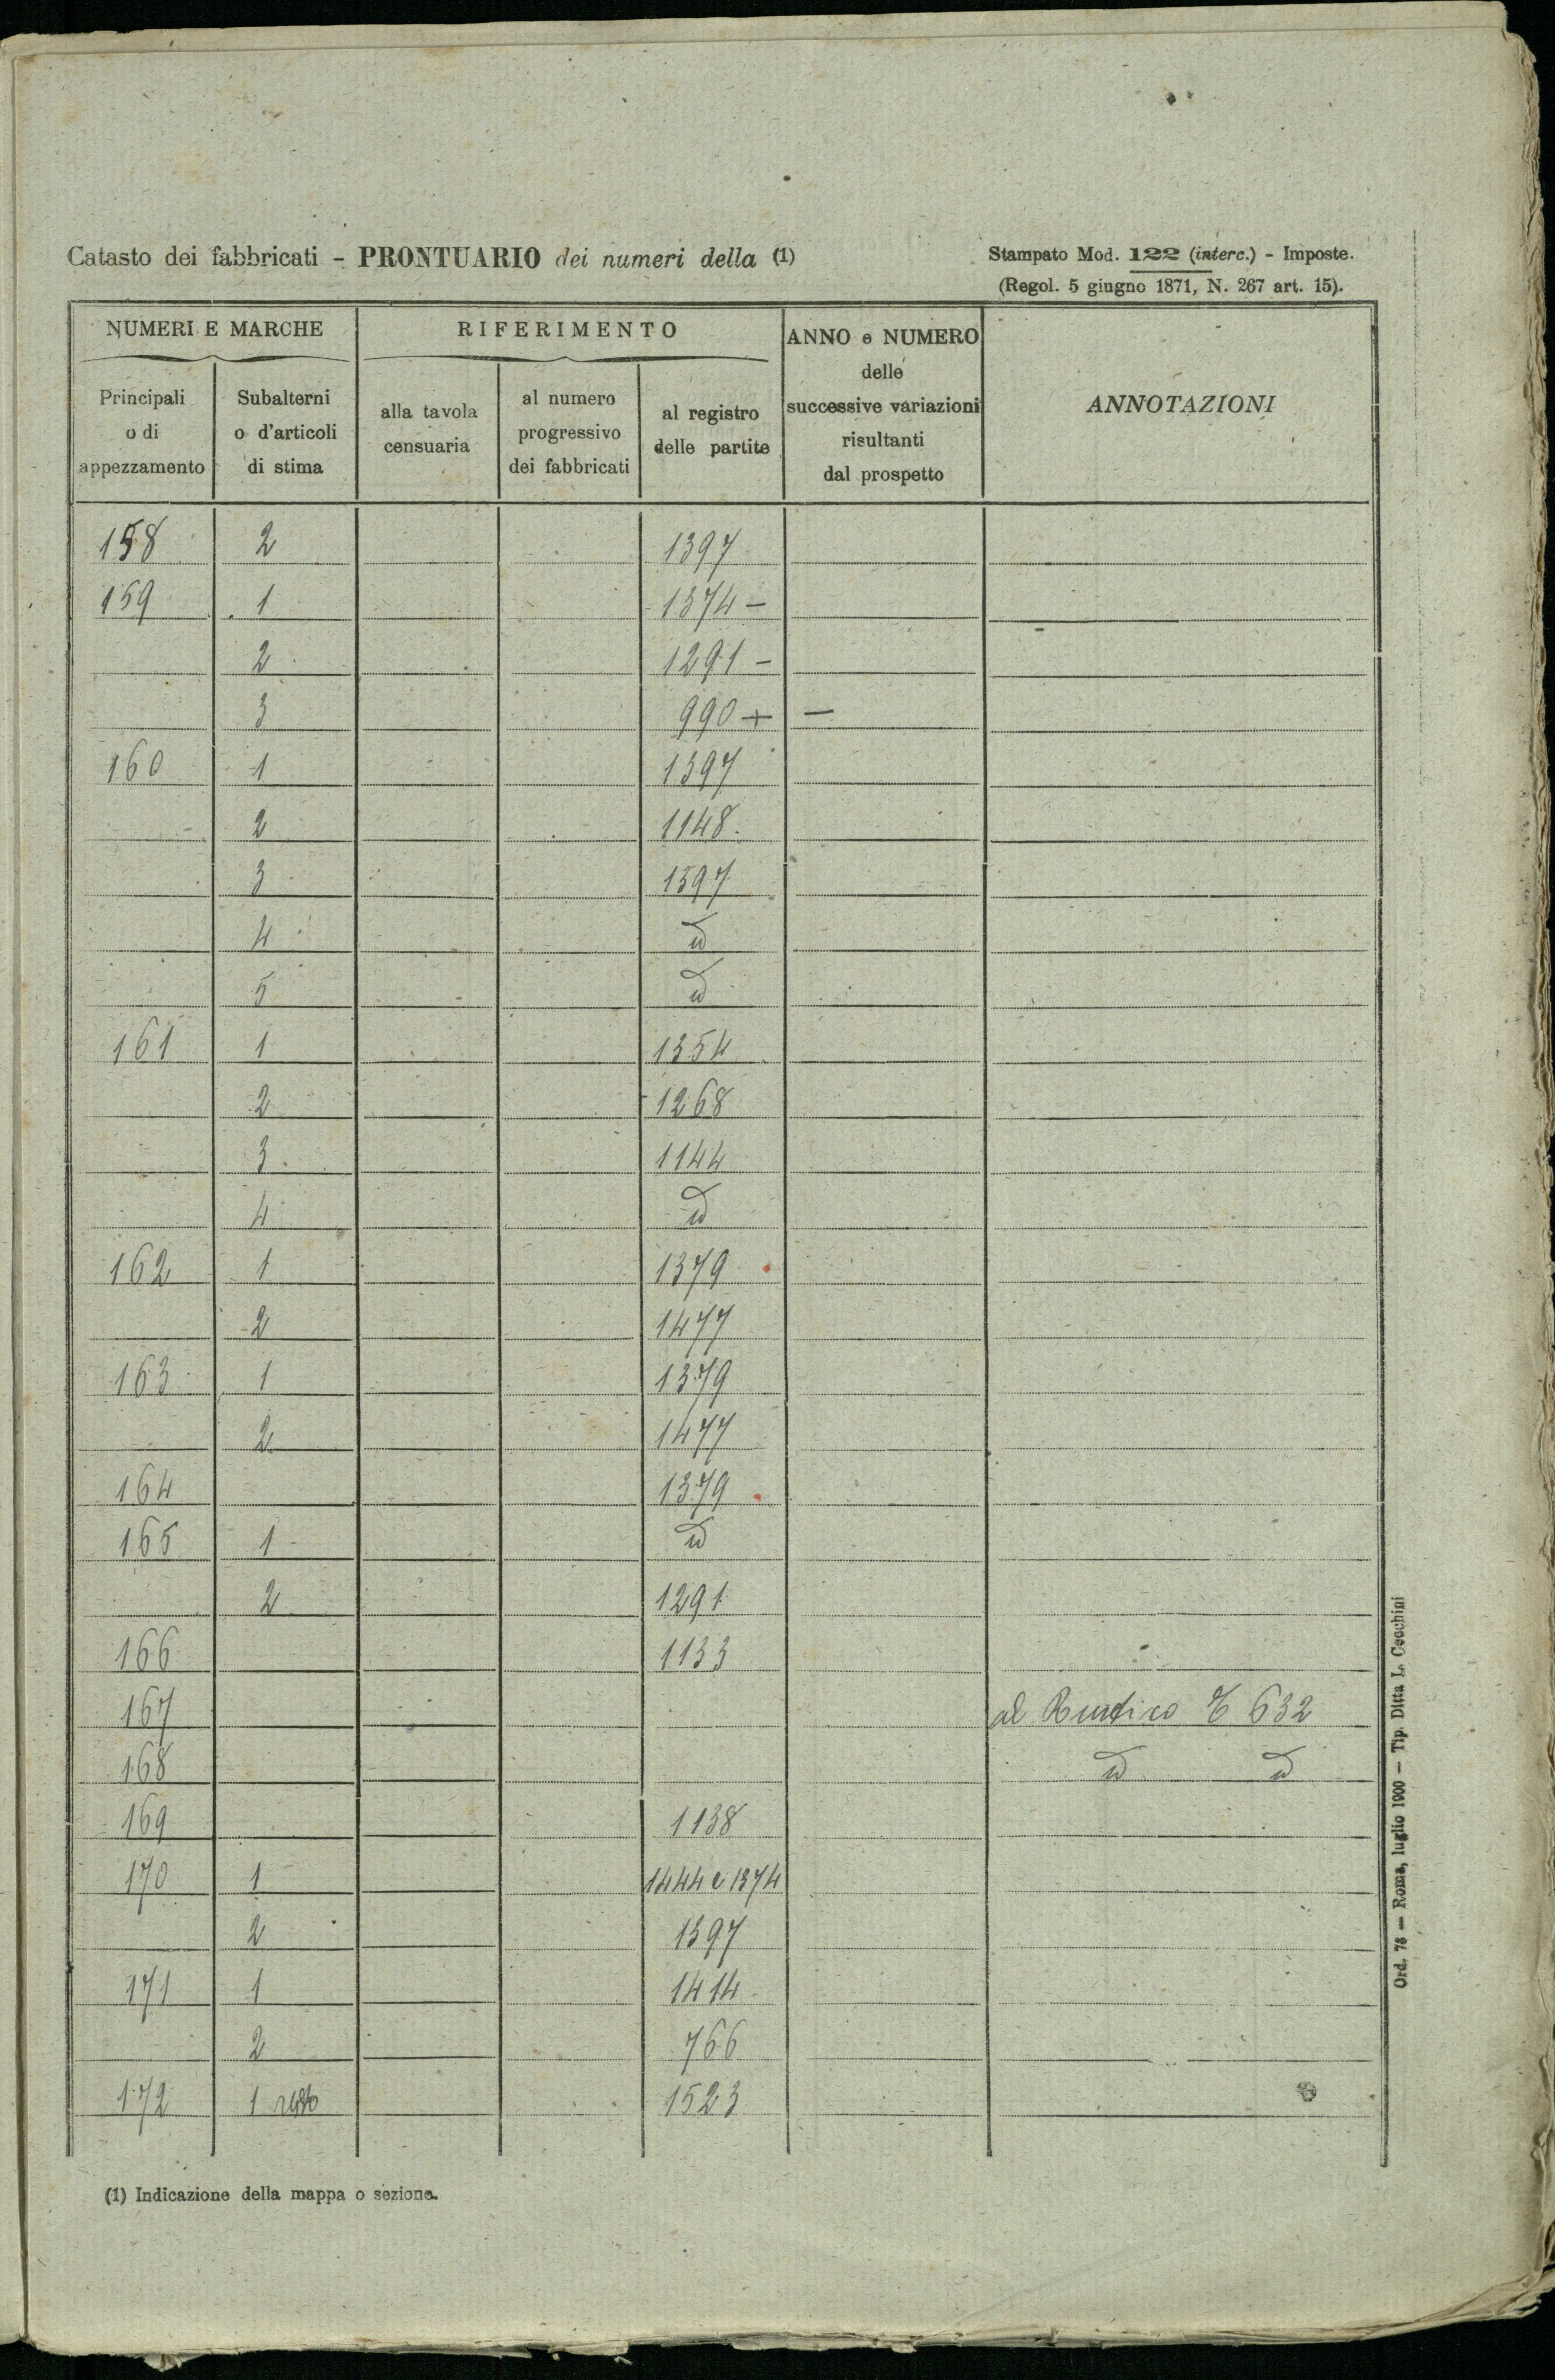 Catasto dei fabbricati - PRONTUARIO dei numeri della (1)
Stampato Mod. 122 (interc.) - Imposte.
(Regol. 5 giugno 1871, N. 267 art. 15).
NUMERI E MARCHE
RIFERIMENTO
ANNO e NUMERO
delle
successive variazioni
risultanti
dal prospetto
ANNOTAZIONI
Principali
o di
appezzamento
Subalterni
o d'articoli
di stima
alla tavola
censuaria
al numero
progressivo
dei fabbricati
al registro
delle partite
158 2 1397
159 1 1374 -
2 1291 -
3 990 + -
160 1 1397
2 1148
3 1397
4 id
5 id
161 1 1354
2 1268
3 1144
4 id
162 1 1379
2 1477
163 1 1379
2 1477
164 1379
165 1 id
2 1291
166 1133
167 al Rustico 632
168 id id
169 1138
170 1 1444 e 1374
2 1397
171 1 1414
2 766
172 1 resto 1523
(1) Indicazione della mappa o sezione.
Ord. 76 — Roma, luglio 1900 — Tip. Ditta L. Cecchini